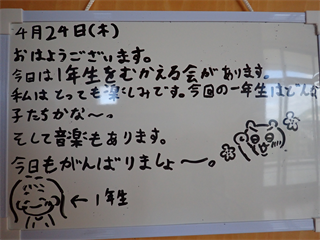 4月24日(木)
おはようございます。
今日は1年生をむかえる会があります。
私はとっても楽しみです。今回の一年生はどんな
子たちかな〜。
そして音楽もあります。
今日もがんばりましょ〜。
←1年生